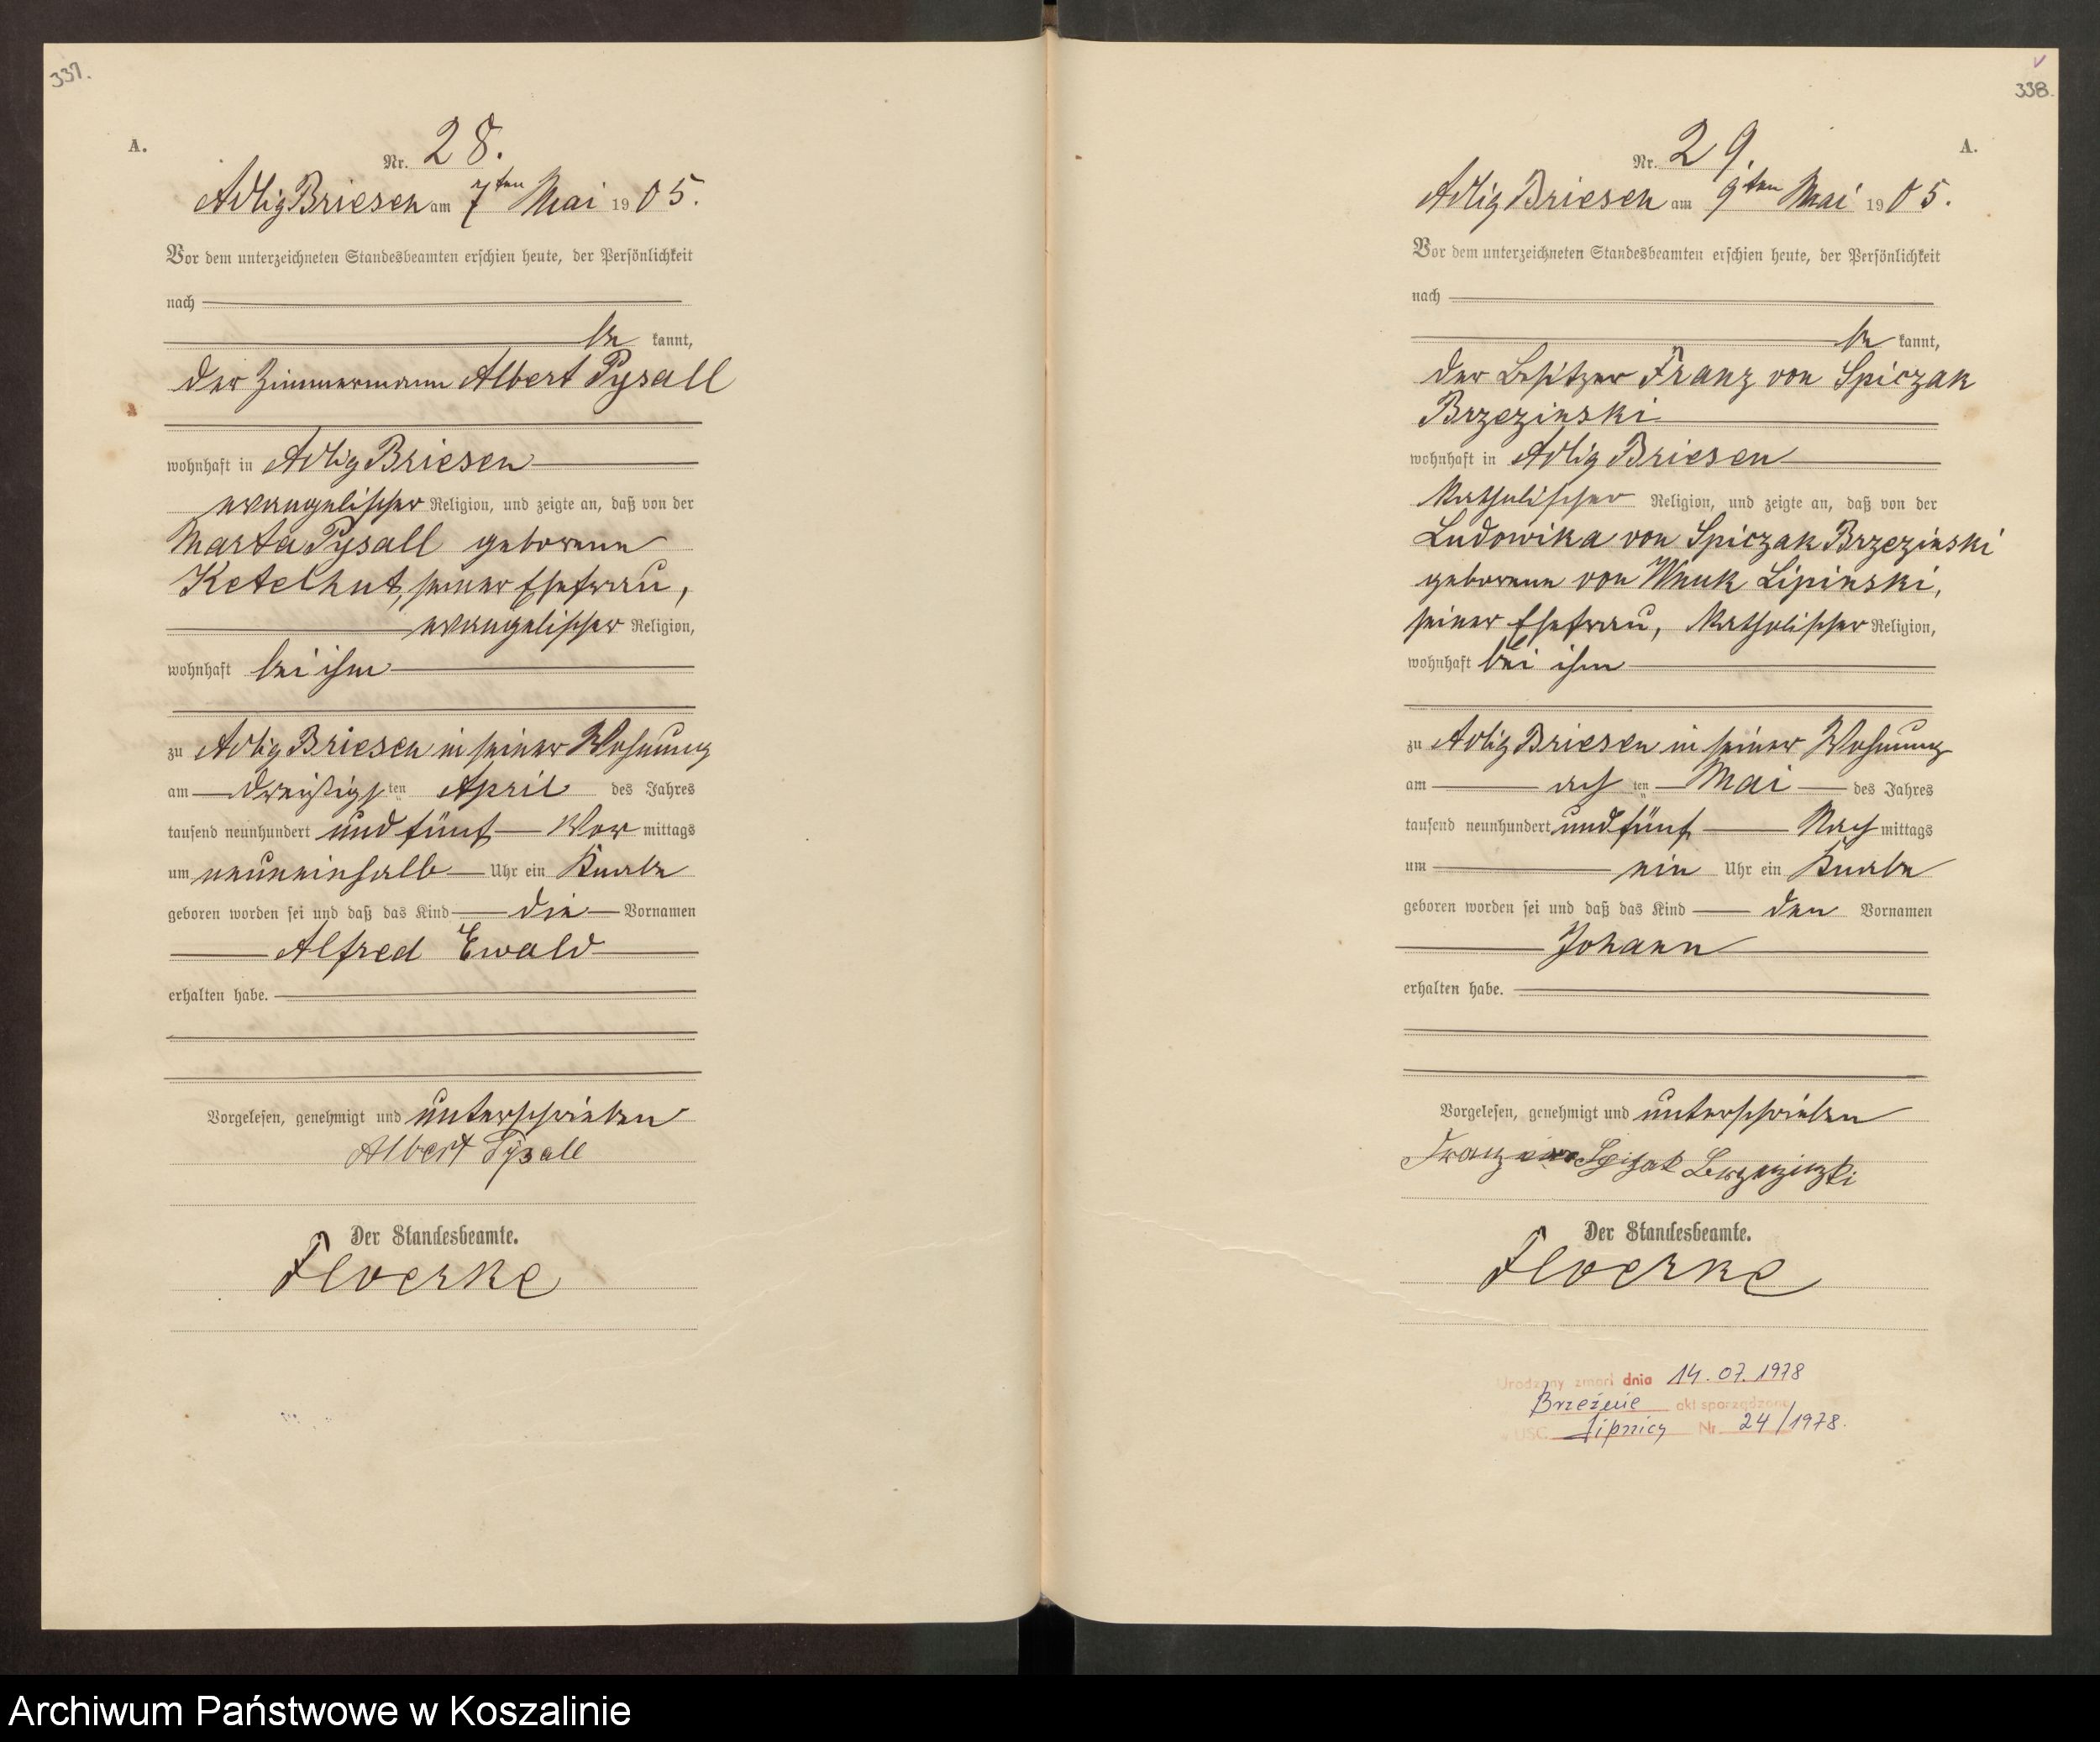 337.
A.
Nr. 28.
Adlig Briesen am 7ten Mai 1905.
Vor dem unterzeichneten Standesbeamten erschien heute, der Persönlichkeit
nach
be kannt,
der Zimmermann Albert Pysall
wohnhaft in Adlig Briesen
evangelischer Religion, und zeigte an, daß von der
Marta Pysall geborenen
Ketelhut, seiner Ehefrau,
evangelischer Religion,
wohnhaft bei ihm
zu Adlig Briesen in seiner Wohnung
am dreißigsten April des Jahres
tausend neunhundert und fünf Vor mittags
um neuneinhalb Uhr ein Knabe
geboren worden sei und daß das Kind die Vornamen
Alfred Ewald
erhalten habe.
Vorgelesen, genehmigt und unterschrieben
Albert Pysall
Der Standesbeamte.
Floerke
338.
A.
Nr. 29.
Adlig Briesen am 9ten Mai 1905.
Vor dem unterzeichneten Standesbeamten erschien heute, der Persönlichkeit
nach
be kannt,
der Besitzer Franz von Spiczak
Brzezinski
wohnhaft in Adlig Briesen
katholischer Religion, und zeigte an, daß von der
Ludowika von Spiczak Brzezinski
geborenen von Wnuk Lipinski,
seiner Ehefrau, katholischer Religion,
wohnhaft bei ihm
zu Adlig Briesen in seiner Wohnung
am achten Mai des Jahres
tausend neunhundert und fünf Nach mittags
um ein Uhr ein Knabe
geboren worden sei und daß das Kind den Vornamen
Johann
erhalten habe.
Vorgelesen, genehmigt und unterschrieben
Franz von
Der Standesbeamte.
Floerke
Urodzony zmarł dnia 14.07.1978
Brzeźnie akt sporządzono
w USC Lipnicy Nr. 24/1978.
Archiwum Państwowe w Koszalinie